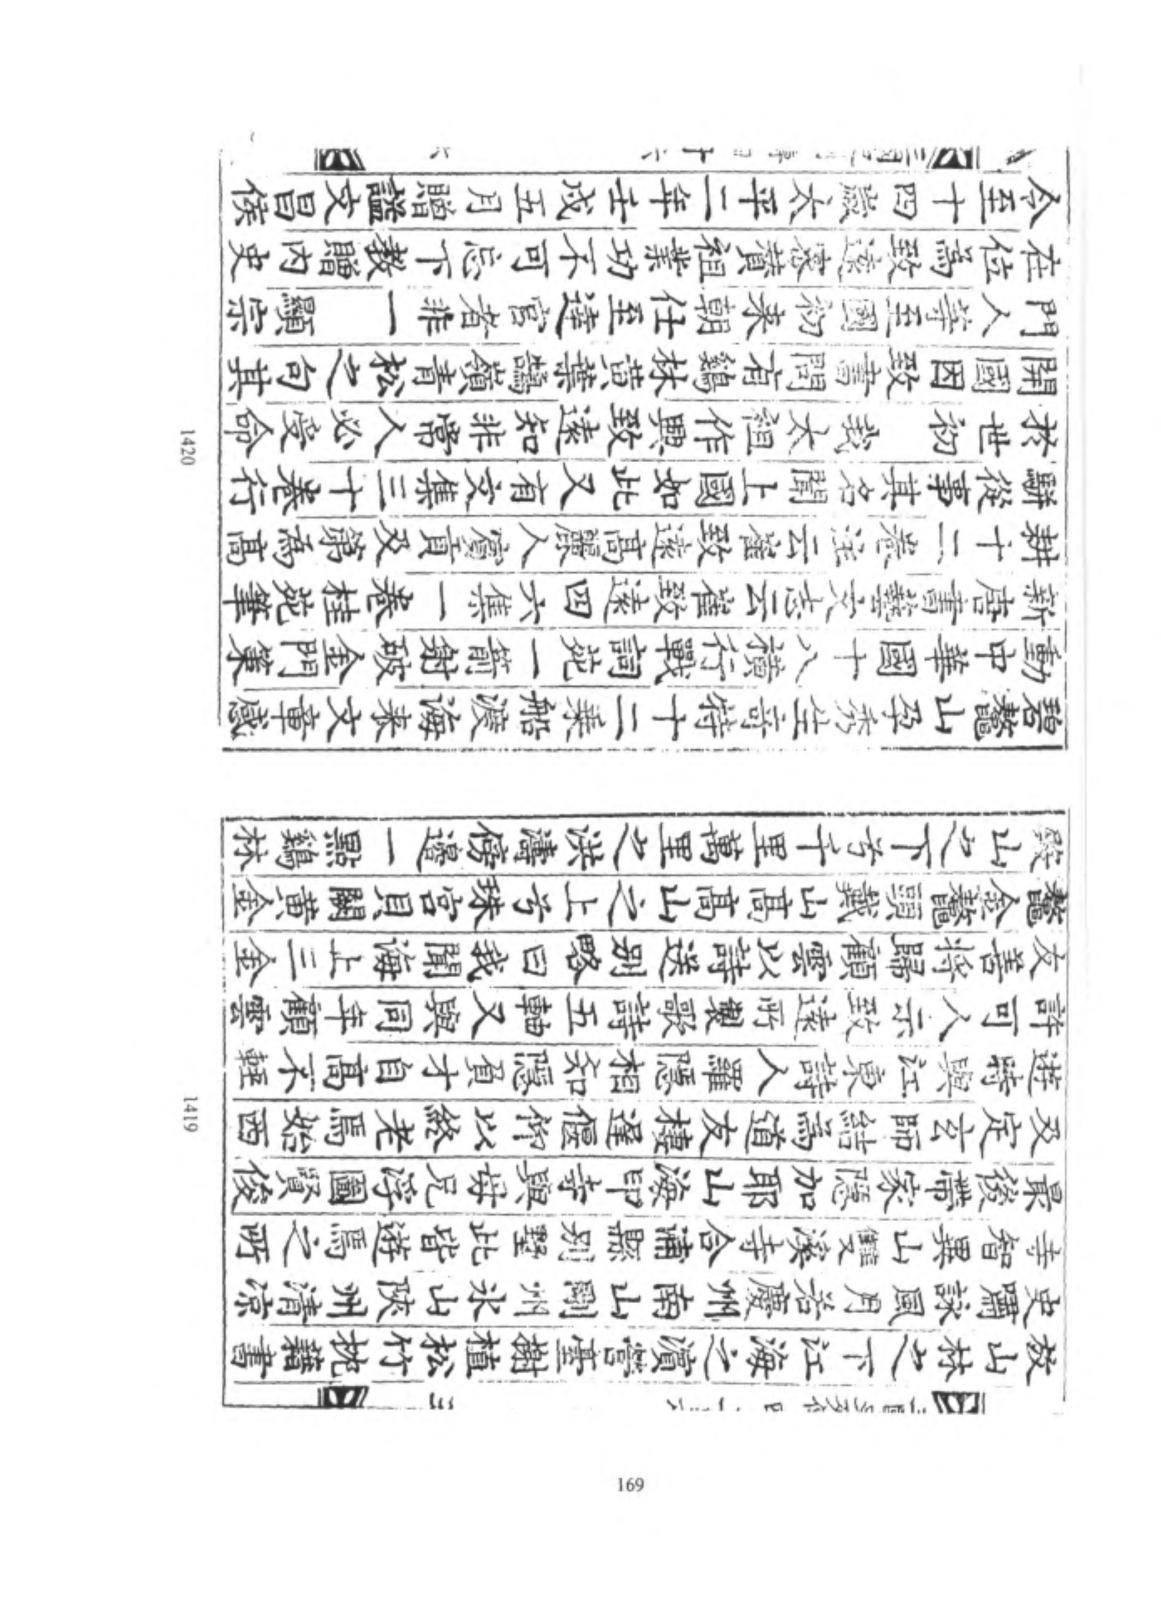 放山林之下江海之濱營臺榭植松竹枕籍書
史嘯詠風月若慶州南山剛州氷山陜州清涼
寺智異山雙溪寺合浦縣別墅此皆遊焉之所
最後帶家隱加耶山海印寺與母兄浮圖賢俊
及定玄師結爲道友棲遲偃仰以終老焉始西
遊時與江東詩人羅隱相知隱負才自高不輕
許可人示致遠所製歌詩五軸又與同年顧雲
友善將歸顧雲以詩送別略曰我聞海上三金
鼇金鼇頭戴山高高山之上兮珠宮貝闕黃金
殿山之下兮千里萬里之洪濤傍邊一點鷄林
1419
碧鼇山孕秀生奇特十二乘船渡海來文章感
動中華國十八橫行戰詞苑一箭射破金門策
新唐書藝文志云崔致遠四六集一卷桂苑筆
耕十二卷注云崔致遠高麗人賓貢及第為高
駢從事其名聞上國如此又有文集三十卷行
於世初 我太祖作興致遠知非常人必受命
開國因致書問有鷄林黃葉鵠嶺青松之句其
門人等至國初來朝仕至達官者非一 顯宗
在位爲致遠密贊祖業功不可忘下教贈內史
令至十四歲太平二年壬戌五月贈謚文昌侯
1420
169